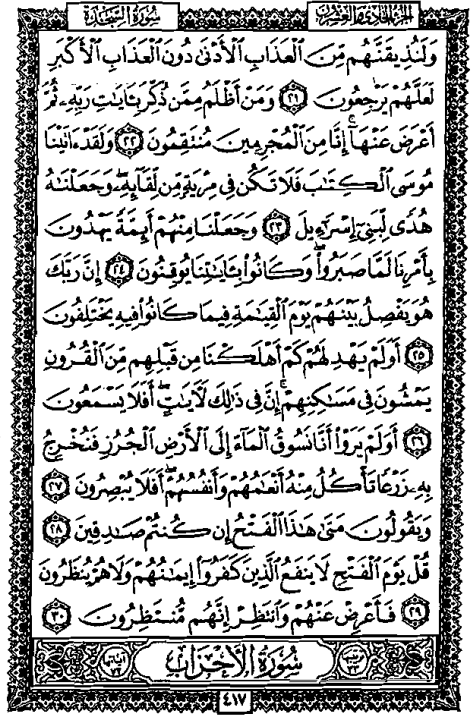 الجزء الحادي والعشرون سورة السجدة
وَلَنُذِيقَنَّهُم مِّنَ ٱلْعَذَابِ ٱلْأَدْنَىٰ دُونَ ٱلْعَذَابِ ٱلْأَكْبَرِ
لَعَلَّهُمْ يَرْجِعُونَ ٢١ وَمَنْ أَظْلَمُ مِمَّن ذُكِّرَ بِـَٔايَٰتِ رَبِّهِۦ ثُمَّ
أَعْرَضَ عَنْهَآ ۚ إِنَّا مِنَ ٱلْمُجْرِمِينَ مُنتَقِمُونَ ٢٢ وَلَقَدْ ءَاتَيْنَا
مُوسَى ٱلْكِتَٰبَ فَلَا تَكُن فِى مِرْيَةٍ مِّن لِّقَآئِهِۦ ۖ وَجَعَلْنَٰهُ
هُدًى لِّبَنِىٓ إِسْرَٰٓءِيلَ ٢٣ وَجَعَلْنَا مِنْهُمْ أَئِمَّةً يَهْدُونَ
بِأَمْرِنَا لَمَّا صَبَرُوا۟ ۖ وَكَانُوا۟ بِـَٔايَٰتِنَا يُوقِنُونَ ٢٤ إِنَّ رَبَّكَ
هُوَ يَفْصِلُ بَيْنَهُمْ يَوْمَ ٱلْقِيَٰمَةِ فِيمَا كَانُوا۟ فِيهِ يَخْتَلِفُونَ
٢٥ أَوَلَمْ يَهْدِ لَهُمْ كَمْ أَهْلَكْنَا مِن قَبْلِهِم مِّنَ ٱلْقُرُونِ
يَمْشُونَ فِى مَسَٰكِنِهِمْ ۚ إِنَّ فِى ذَٰلِكَ لَـَٔايَٰتٍ ۖ أَفَلَا يَسْمَعُونَ
٢٦ أَوَلَمْ يَرَوْا۟ أَنَّا نَسُوقُ ٱلْمَآءَ إِلَى ٱلْأَرْضِ ٱلْجُرُزِ فَنُخْرِجُ
بِهِۦ زَرْعًا تَأْكُلُ مِنْهُ أَنْعَٰمُهُمْ وَأَنفُسُهُمْ ۖ أَفَلَا يُبْصِرُونَ ٢٧
وَيَقُولُونَ مَتَىٰ هَٰذَا ٱلْفَتْحُ إِن كُنتُمْ صَٰدِقِينَ ٢٨
قُلْ يَوْمَ ٱلْفَتْحِ لَا يَنفَعُ ٱلَّذِينَ كَفَرُوٓا۟ إِيمَٰنُهُمْ وَلَا هُمْ يُنظَرُونَ
٢٩ فَأَعْرِضْ عَنْهُمْ وَٱنتَظِرْ إِنَّهُم مُّنتَظِرُونَ ٣٠
ترتيبها ٣٣ سُورَةُ الأَحْزَابِ آياتها ٧٣
٤١٧